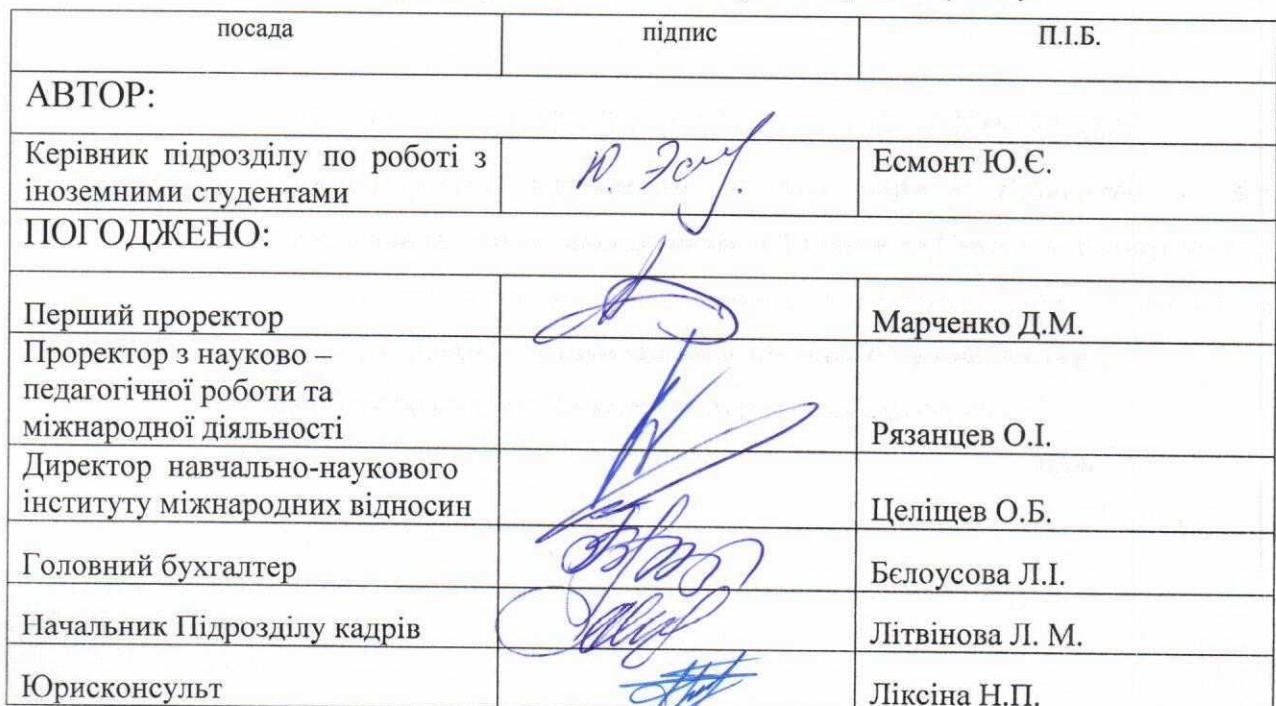 посада підпис П.І.Б.
АВТОР:
Керівник підрозділу по роботі з
іноземними студентами
Есмонт Ю.Є.
ПОГОДЖЕНО:
Перший проректор Марченко Д.М.
Проректор з науково –
педагогічної роботи та
міжнародної діяльності Рязанцев О.І.
Директор навчально-наукового
інституту міжнародних відносин Целіщев О.Б.
Головний бухгалтер Бєлоусова Л.І.
Начальник Підрозділу кадрів Літвінова Л. М.
Юрисконсульт Ліксіна Н.П.